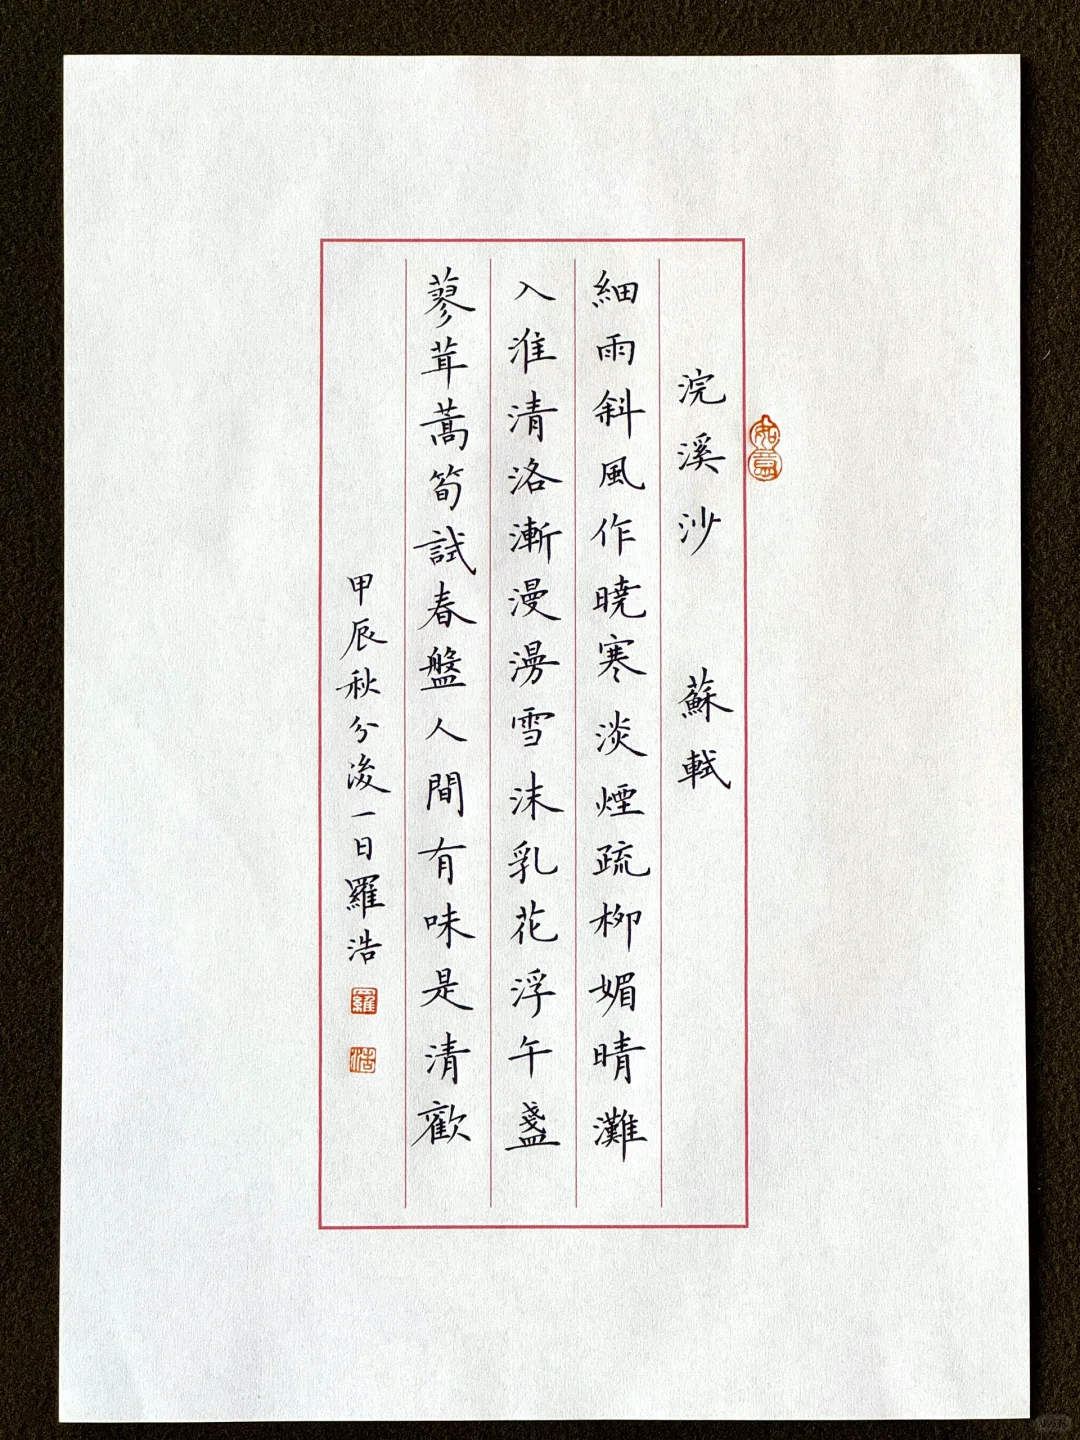 浣溪沙 蘇軾
細雨斜風作曉寒淡煙疏柳媚晴灘
入淮清洛漸漫漫雪沫乳花浮午盞
蓼茸蒿筍試春盤人間有味是清歡
甲辰秋分後一日羅浩
如意
羅
浩